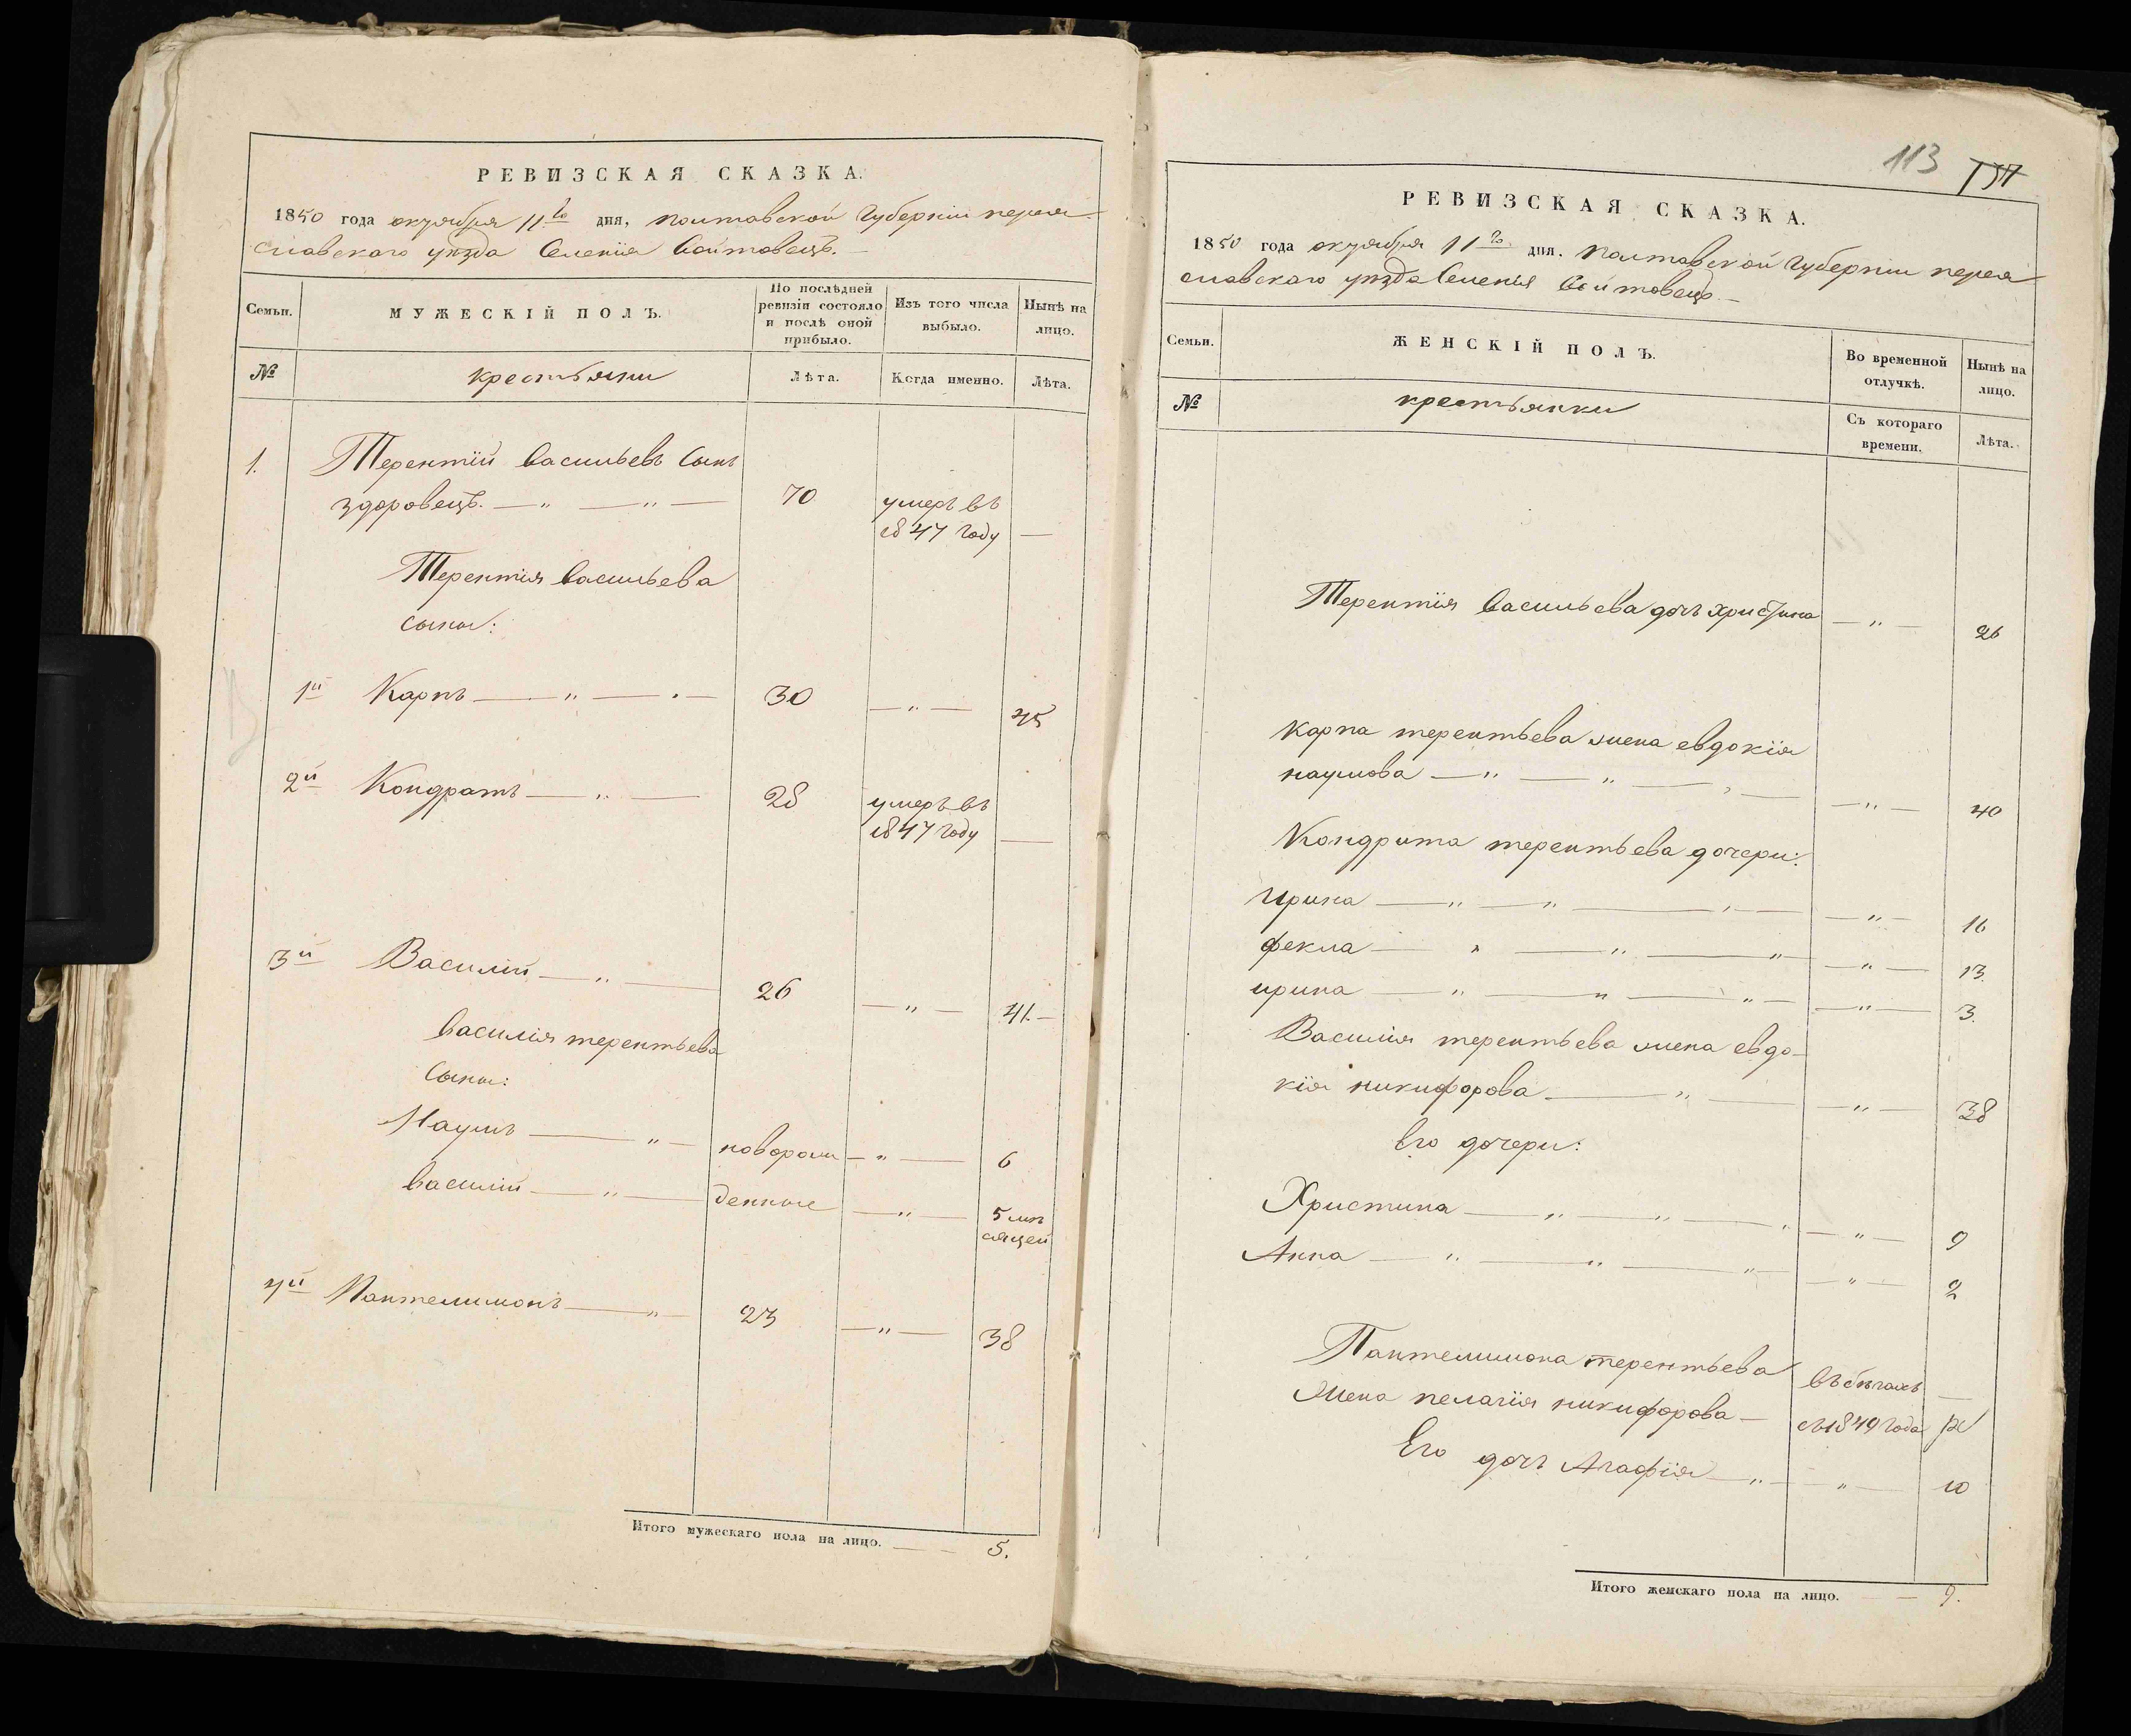 РЕВИЗСКАЯ СКАЗКА.
1850 года октября 11го дня, полтавской Губерніи перея
славскаго уѣзда Селенія Войтовецъ.
Семьи.
МУЖЕСКІЙ ПОЛЪ.
По послѣдней
ревизіи состояло
и послѣ оной
прибыло.
Изъ того числа
выбыло.
Нынѣ на
лицо.
№
крестьяни
Лѣта.
Когда именно.
Лѣта.
1. Терентій Васильевъ Сынъ
здоровецъ. — „ — „ — 70 умеръ въ
1847 году —
Терентія Васильева
сыны:
1й Карпъ — „ — „ — 30 — „ — 45
2й Кондратъ — „ — 28 умеръ въ
1847 году —
3й Василій — „ — 26 — „ — 41. —
Василія терентьева
Сыны:
Наумъ — „ — новорож — „ — 6
Василій — „ — денные — „ — 5 мѣ
сяцей
4й Пантелимонъ — „ — 23 — „ — 38
Итого мужескаго пола на лицо. — — 5.
113
РЕВИЗСКАЯ СКАЗКА.
1850 года октября 11го дня. полтавской Губерніи перея
славскаго уѣзда Селенія Войтовецъ. —
Семьи.
ЖЕНСКІЙ ПОЛЪ.
Во временной
отлучкѣ.
Нынѣ на
лицо.
№
крестьянки
Съ котораго
времени.
Лѣта.
Терентія Васильева дочь христина — „ — 26
Карпа терентьева жена евдокія
наумова — „ — „ — „ — — „ — 40
Кондрата терентьева дочери:
Ирина — „ — „ — „ — — „ — 16
фекла — „ — „ — „ — — „ — 13.
ирина — „ — „ — „ — — „ — 3.
Василія терентьева жена евдо-
кія никифорова — „ — — „ — 38
Его дочери:
Христина — „ — „ — „ — „ — 9
Анна — „ — „ — „ — — „ — 2
Пантелимона терентьева въ бѣгахъ —
жена пелагія никифорова — съ 1849 года
Его дочь Агафія — „ — — „ — 10
Итого женскаго пола на лицо. — — 9.